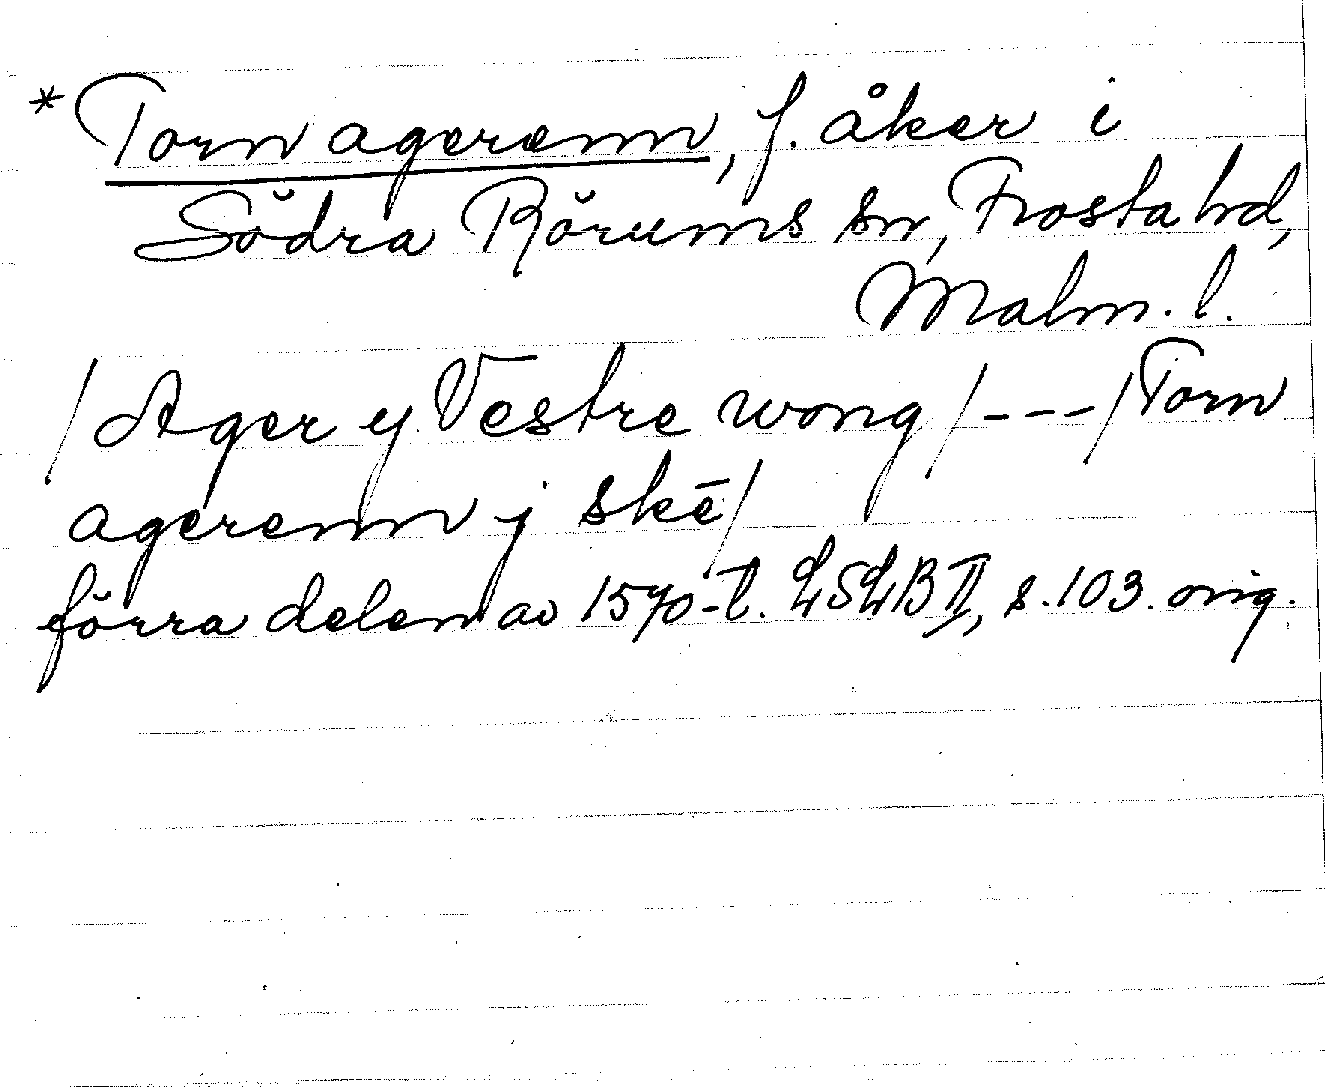 * Torn agerenn, f. åker i
Södra Rörums sn, Frosta hd,
Malm. l.
/ Ager y Vestre wong /---/ Torn
agerenn j skē /
förra delen av 1570-t. LSLB II, s. 103. orig.